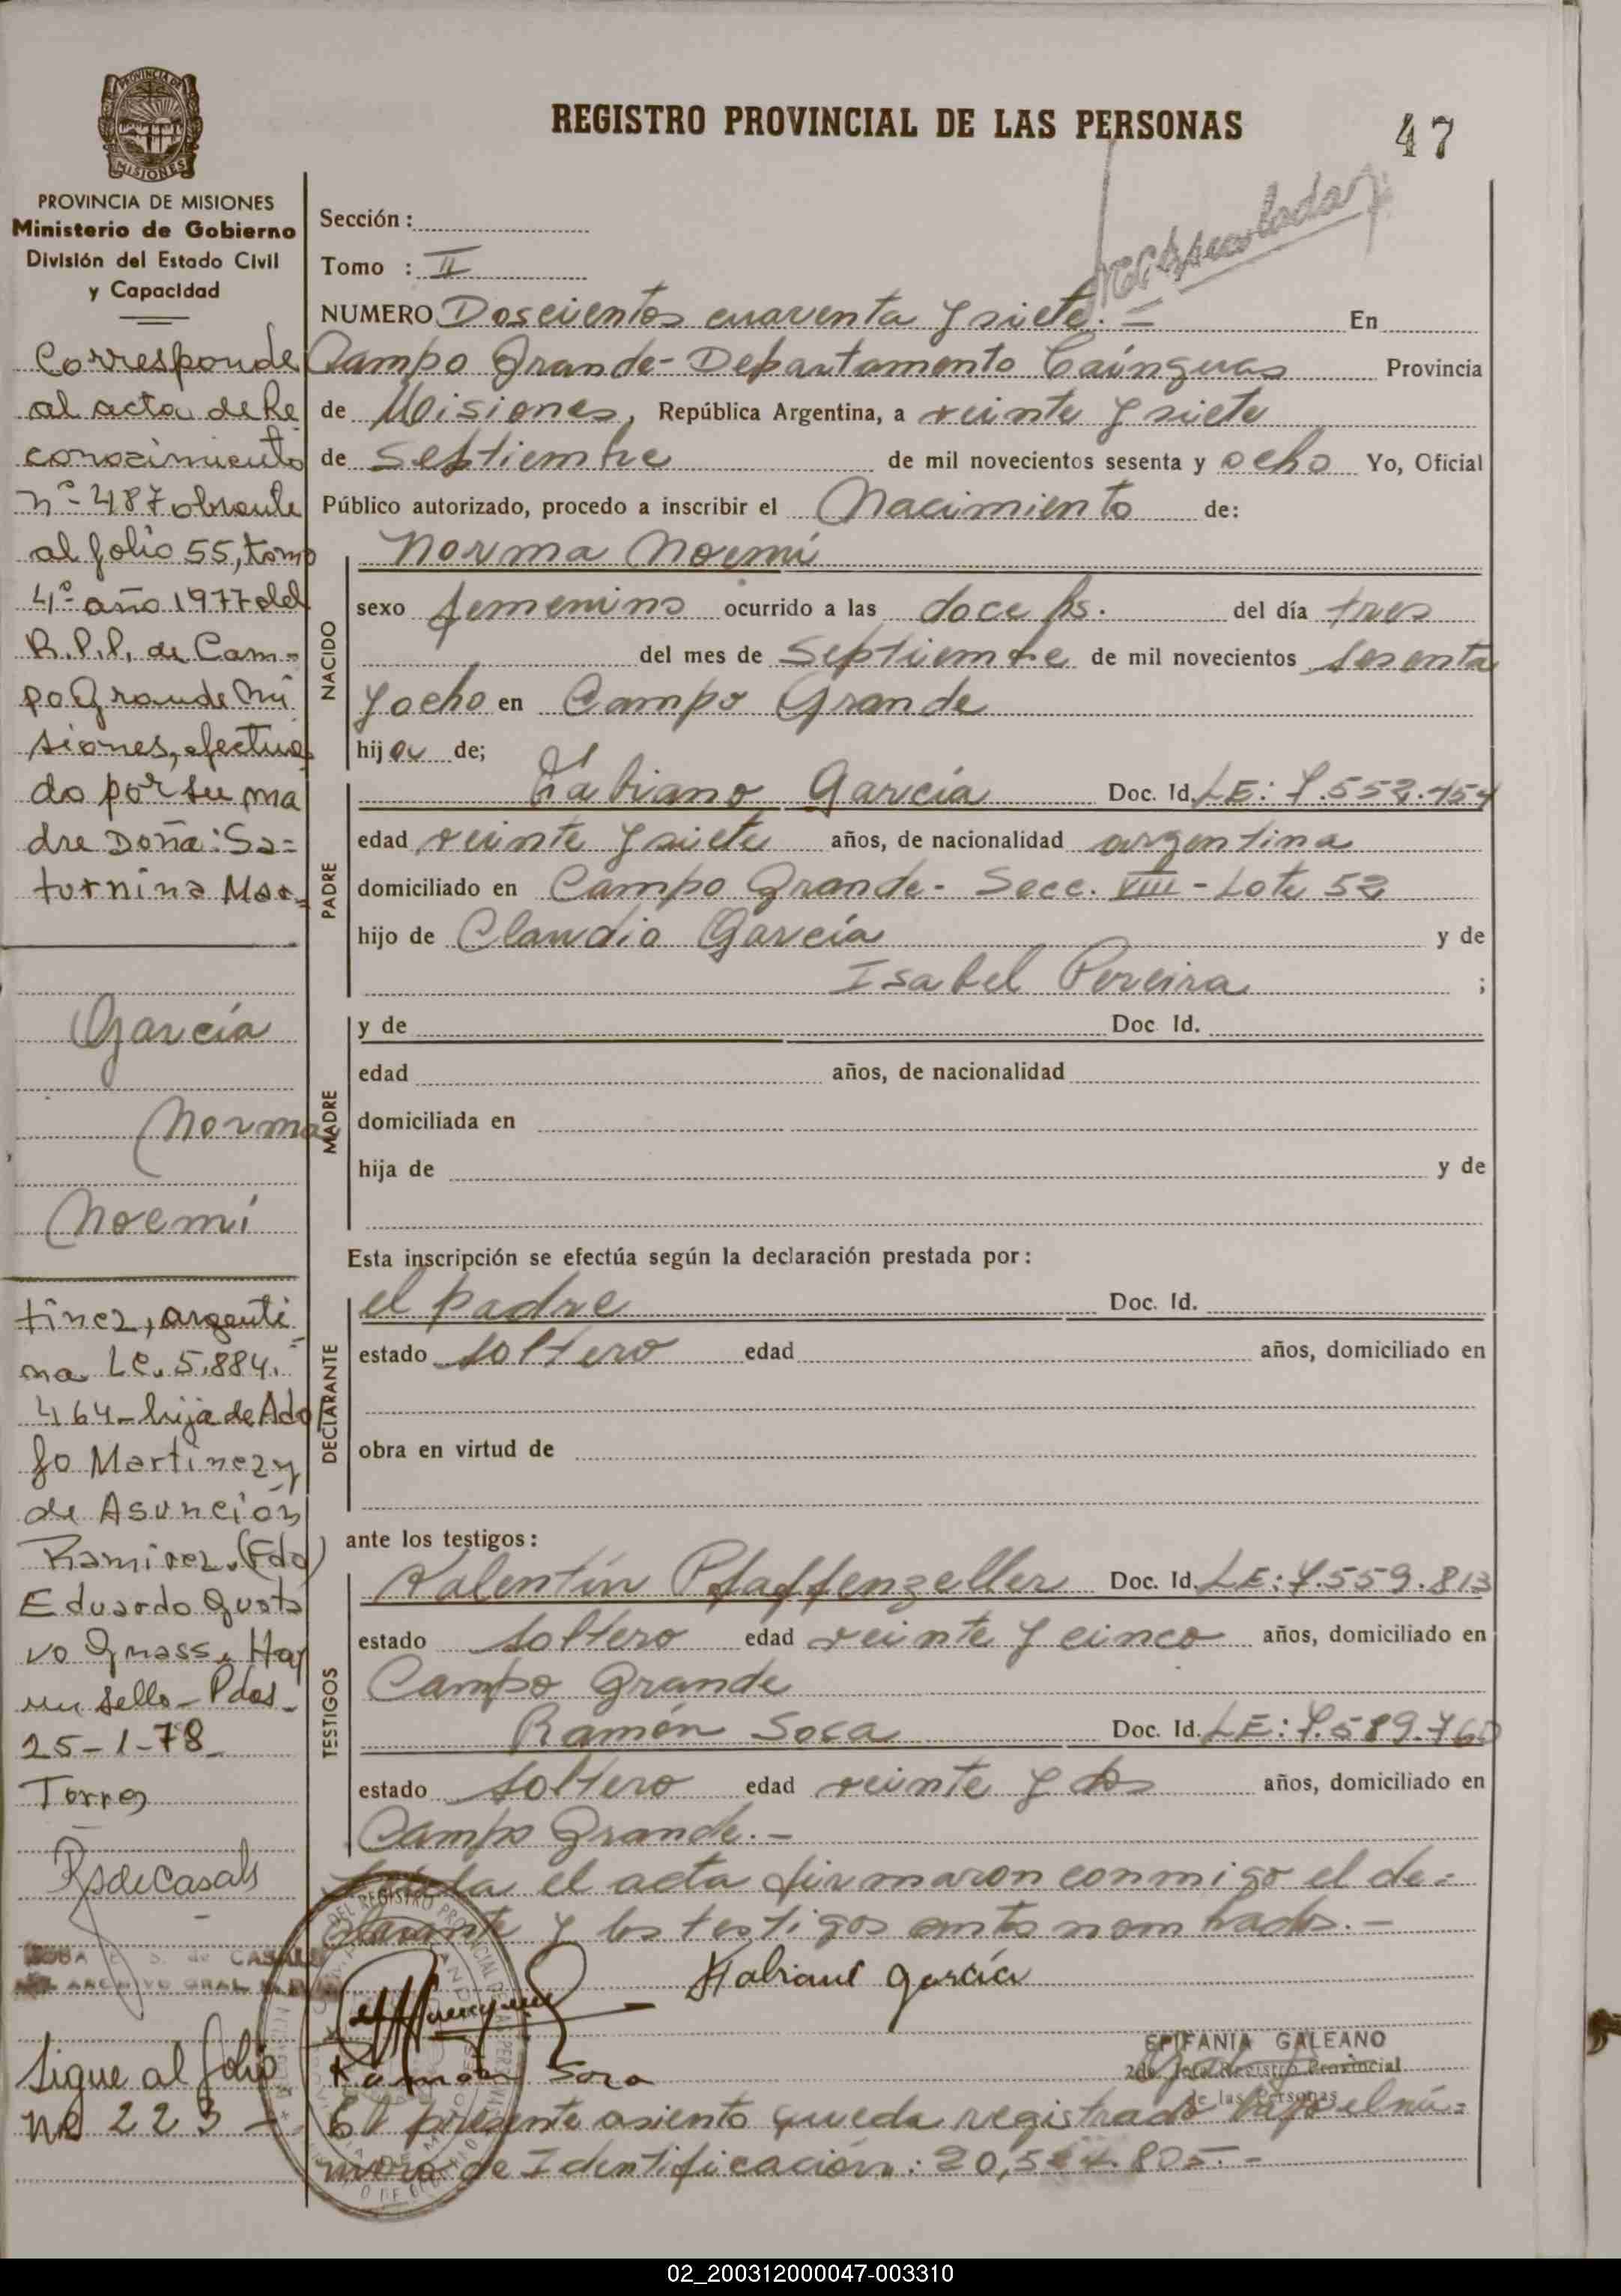 REGISTRO PROVINCIAL DE LAS PERSONAS
47
PROVINCIA DE MISIONES
Ministerio de Gobierno
División del Estado Civil
y Capacidad
Corresponde
al acta de Re
conocimiento
nº 487 obrante
al folio 55, tomo
4º año 1977 del
R.P.P. de Cam-
po Grande Mi
siones, efectua
do por su ma
dre Doña: Sa=
turnina Mar=
García
Norma
Noemí
tinez, argenti
na L.C. 5.884.
464 - hija de Adol
fo Martinez y
de Asunción
Ramirez. (Fdo)
Eduardo Gusta
vo Grass. Hay
un sello - Pdas
25-1-78
Torres
RsdeCasals
Sigue al folio
nº 223 -
Sección :
Tomo : II
NUMERO Doscientos cuarenta y siete. = En
Campo Grande - Departamento Cainguas Provincia
de Misiones, República Argentina, a veinte y siete
de Septiembre de mil novecientos sesenta y ocho Yo, Oficial
Público autorizado, procedo a inscribir el Nacimiento de:
NACIDO
Norma Noemí
sexo femenino ocurrido a las doce hs. del día tres
del mes de Septiembre de mil novecientos sesenta
y ocho en Campo Grande
hija de;
PADRE
Fabiano García Doc. Id. LE: 7.552.454
edad veinte y siete años, de nacionalidad argentina
domiciliado en Campo Grande - Secc. VIII - Lote 52
hijo de Claudio García y de
Isabel Pereira ;
MADRE
y de Doc. Id.
edad años, de nacionalidad
domiciliada en
hija de y de
Esta inscripción se efectúa según la declaración prestada por :
DECLARANTE
el padre Doc. Id.
estado soltero edad años, domiciliado en
obra en virtud de
ante los testigos :
TESTIGOS
Valentín Pfaffenzeller Doc. Id. LE: 7.559.813
estado soltero edad veinte y cinco años, domiciliado en
Campo Grande
Ramón Sosa Doc. Id. LE: 7.589.760
estado soltero edad veinte y dos años, domiciliado en
Campo Grande. -
Leída el acta firmaron conmigo el de=
clarante y los testigos antes nombrados. -
Fabiano García
EPIFANIA GALEANO
2da. Jefe Registro Provincial
de las Personas
Ramón Sosa
El presente asiento queda registrado bajo el nú=
mero de Identificación: 20,
02_200312000047-003310